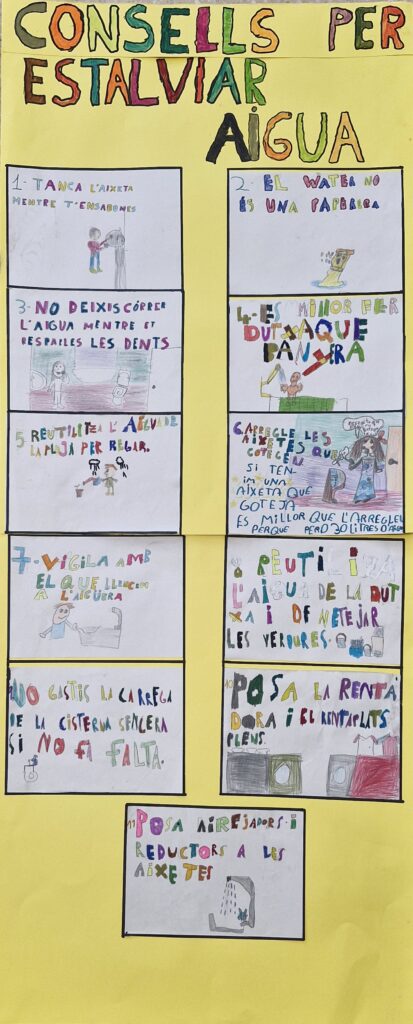 CONSELLS PER
ESTALVIAR
AIGUA
1- TANCA L'AIXETA
MENTRE T'ENSABONES
2- EL WATER NO
ÉS UNA PAPERERA
3- NO DEIXIS CÓRRER
L'AIGUA MENTRE ET
RESPALLES LES DENTS
4- ES MILLOR FER
DUTXA QUE
BANYERA
5. REUTILITZA L'AIGUA DE
LA PLUJA PER REGAR.
ARREGLE LES
AIXETES QUE
GOTEGEN
SI TEN-
IM UNA
AIXETA QUE
GOTEJA
ES MILLOR QUE L'ARREGLEU
PERQUE PERD 30 LITRES D'AIGUA
7- VIGILA AMB
EL QUE LLENCEM
A L'AIGÜERA
8 REUTILITZA
L'AIGUA DE LA DUT
XA I DE NETEJAR
LES VERDURES.
NO GASTIS LA CARREGA
DE LA CISTERNA SENCERA
SI NO FA FALTA.
10 POSA LA RENTA
DORA I EL RENTAPLATS
PLENS.
11 POSA AIREJADORS I
REDUCTORS A LES
AIXETES